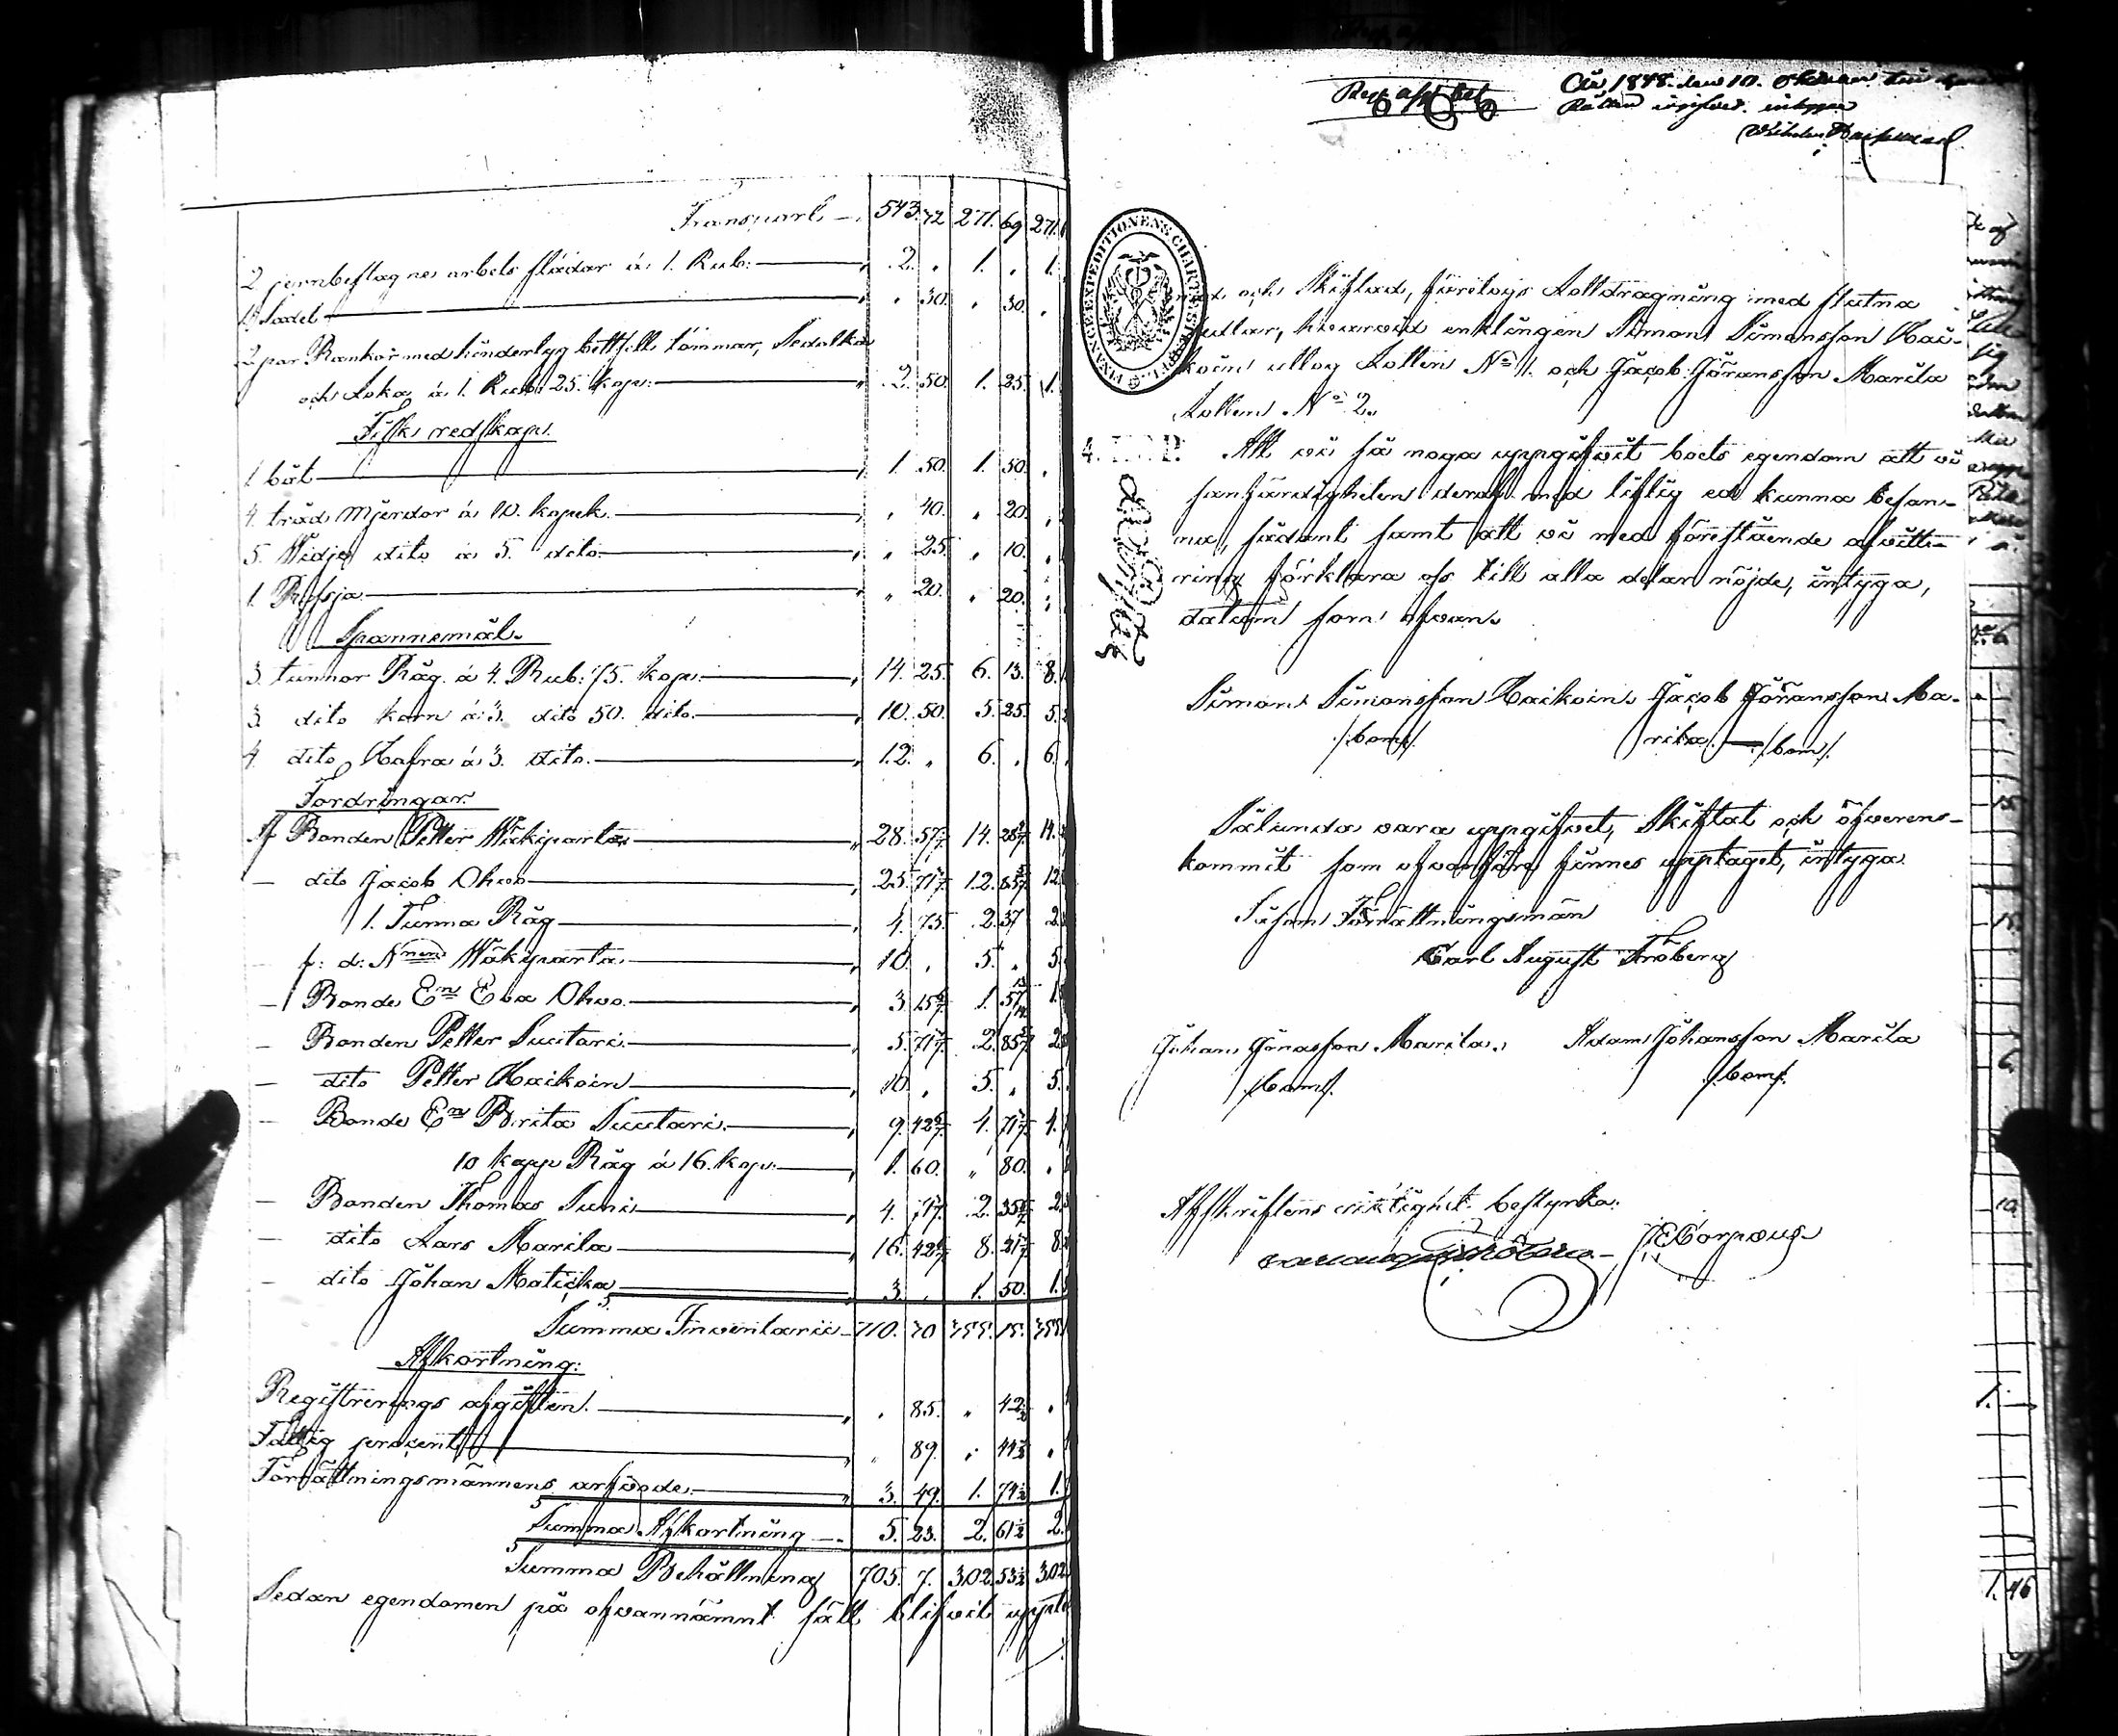 Transport 543. 72 271. 69 271.
2 jernbeslagne arbets slädar à 1. Rub: 2. „ 1. „ 1.
1 Sadel „ 30. „ 30. „
2 par Rankor med hinderlyg bett till tömmar, Sedolka
och Loka à 1. Rub: 25. kop: 2. 50. 1. 25. 1.
Fisk redskap.
1 båt 1. 50. 1. 50. „
4. träd Mjerdor à 10. kopek. „ 40. „ 20. „
5. Widje dito à 5. dito „ 25. „ 10. „
1. Ryssja „ 20. „ 20. „
Spannemål.
3. tunnor Råg. à 4. Rub: 75. kop: 14. 25. 6. 13. 8.
3 dito korn à 3. dito 50. dito. 10. 50. 5. 25. 5.
4. dito Hafra à 3. dito. 12. „ 6. „ 6.
Fordringar.
Af Bonden Petter Wäkiparta 28. 57 1/7 14. 28 4/7 14.
— dito Jacob Ohvo 25. 71 3/7 12. 85 5/7 12
1. Tunna Råg 4. 75. 2. 37 2.
— f: d: Nnen Wäkiparta 10. „ 5. „ 5.
— Bonde En Eva Ohvo. 3. 15 5/7 1. 57 13/14 1.
— Bonden Petter Suutari 5. 71 3/7 2. 85 5/7 2
— dito Petter Haikoin 10. „ 5. „ 5.
— Bonde En Brita Suutari. 9. 42 6/7 4. 71 3/7 4.
10 kapp Råg à 16. kop: 1. 60. „ 80. „
— Bonden Thomas Suni 4. 71 3/7 2. 35 5/7 2
— dito Lars Marila 16. 42 6/7 8. 21 3/7 8
— dito Johan Maticka 3. „ 1. 50. 1.
Summa Inventarii 710. 30 355. 15. 355
Afkortning:
Registrerings afgiften. „ 85. „ 42 1/2 „
Fattig procent „ 89. „ 44 1/2 „
Förrättningsmännens arfvode. 3. 49. 1. 74 1/2 1.
Summa Afkortning 5. 23. 2. 61 1/2 2.
Summa Behållning 705. 7. 302. 53 1/2 302
Sedan egendomen på ofvannämnt sätt blifvit uppte
År 1848. den 10. Rätten ingifvet. intygar
FINANCE EXPEDITIONENS CHARTÆ
och Skiftad, företogs Lottdragning med slutna
sedlar, hvarvid enklingen Simon Simonsson Hai-
koin uttog Lotten No 1. och Jacob Göransson Marila
Lotten No 2.
4.
Att vi så noga uppgifvit boets egendom att vi
sanfärdigheten deraf med liflig ed kunna besan-
na, sådant samt att vi med förestående afvitt-
ring förklara oss till alla delar nöjde, intyga,
datum som ofvan.
Simon Simonsson Haikoin. Jacob Göransson Ma-
/:bom:/ rila. — /:bom:/
Sålunda vara uppgifvet, Skiftat och öfverens-
kommit som ofvanföre finnes upptaget, intyga.
Såsom Förrättningsmän
Carl August Fröberg
Johan Jönasson Marila. Adam Johansson Marila
/:bom:/ /:bom:/
Afskriftens riktighet bestyrka: